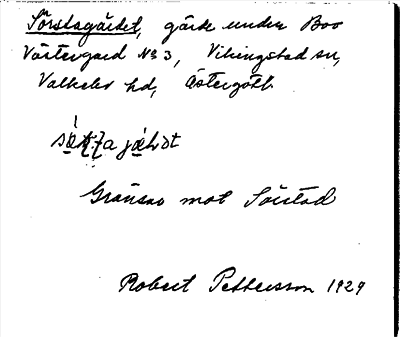 Sörstagärdet, gärde under Boo
Västergård No 3, Vikingstad sn,
Valkebo hd, Östergötl.
Gränsar mot Sörstad
Robert Pettersson 1929